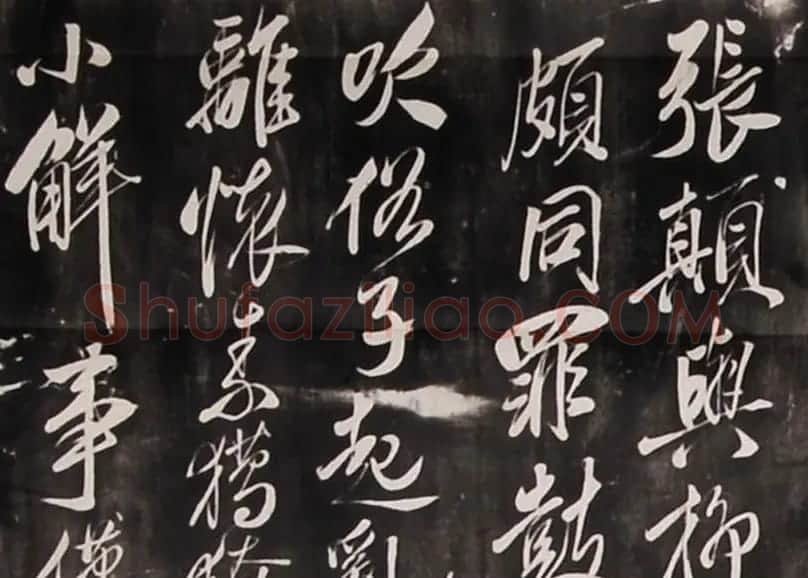 張顛與柳
頗同罪鼓
吹俗子起亂
離懷素獦獠
小解事僅
Shufaziliao.COM